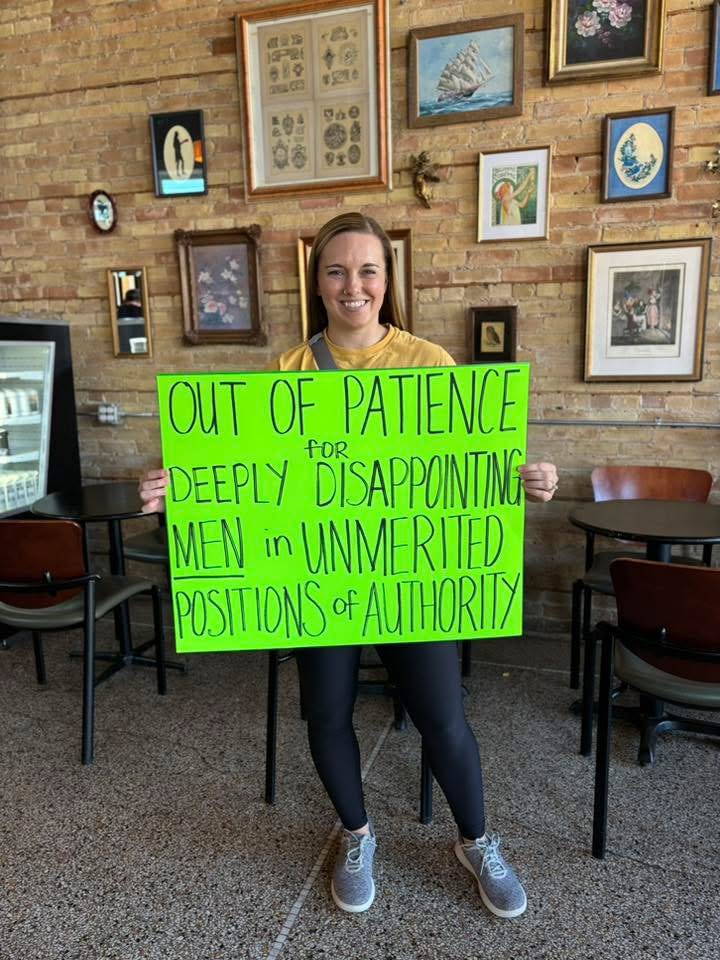 OUT OF PATIENCE
FOR
DEEPLY DISAPPOINTING
MEN in UNMERITED
POSITIONS of AUTHORITY